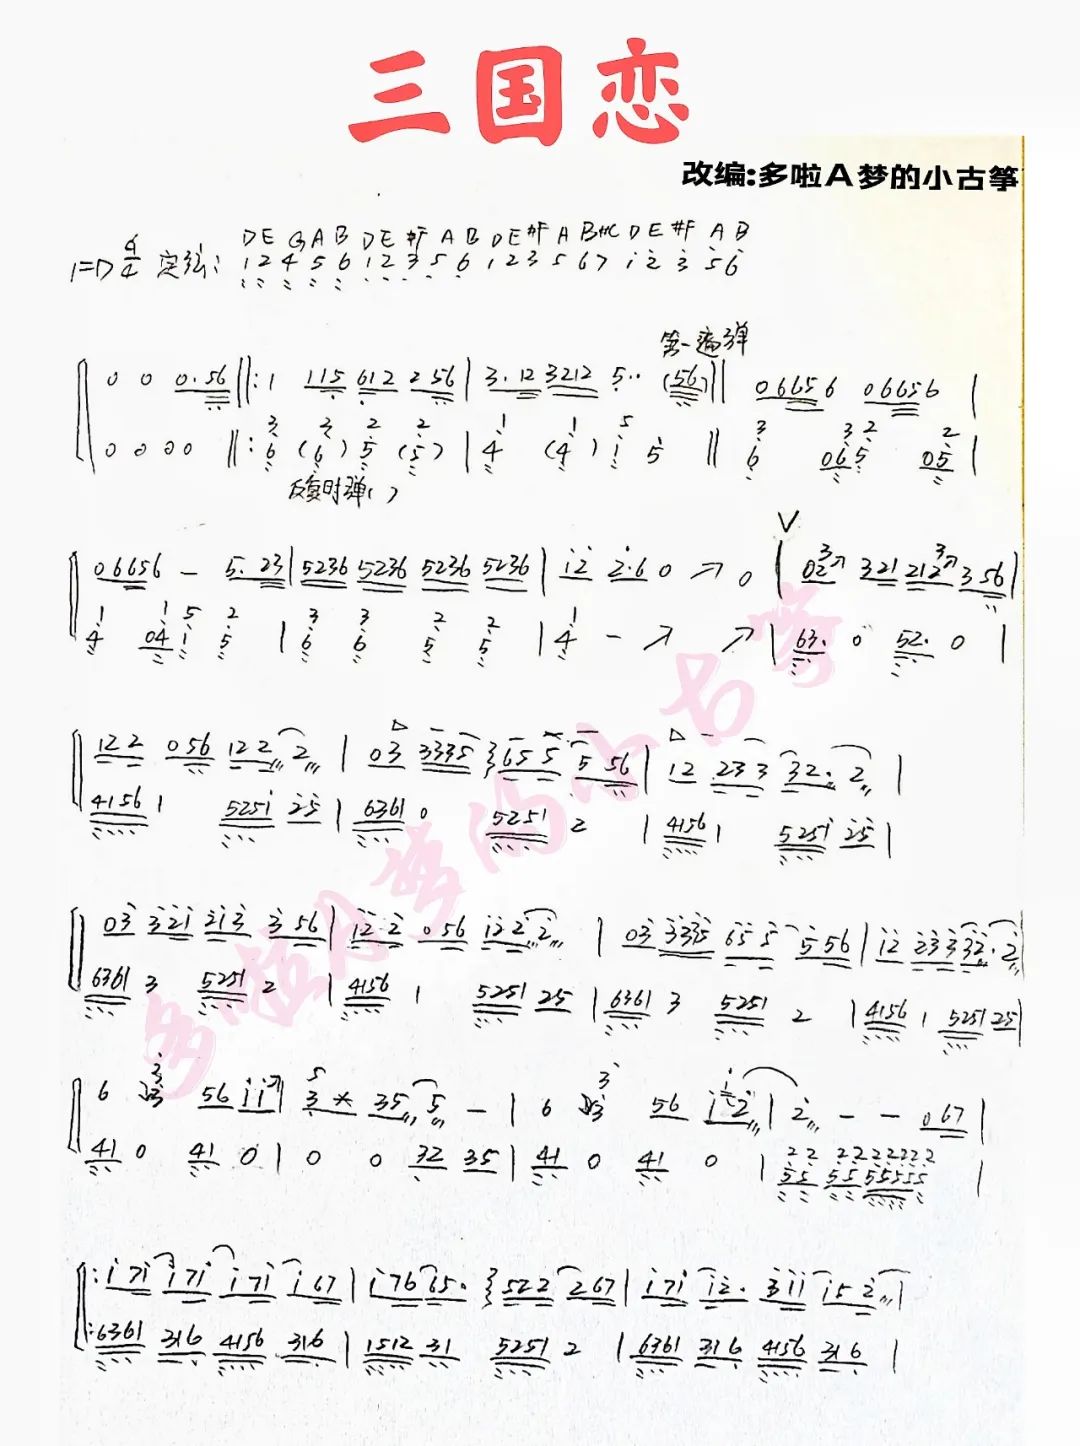 三国恋
改编:多啦A梦的小古筝
DE GAB DE #F A B DE #F A B #C D E #F A B
1=D 4/4 定弦: 1 2 4 5 6 1 2 3 5 6 1 2 3 5 6 7 1 2 3 5 6
第一遍弹
0 0 0.56 ‖: 1 115 612 256 | 3.12 3212 5·· (56) ‖ 06656 06656 |
3 3 2 2 1 1 5 3 3 2 2
0 0 0 0 ‖: 6 (6) 5 (5) | 4 (4) 1 5 ‖ 6 065 05 |
反复时弹( )
V
06656 - 5. 23 | 5236 5236 5236 5236 | 12 2·6 0 ↗ 0 | 02 321 212 356 |
1 1 5 2 3 3 2 2 1
4 041 5 | 6 6 5 5 | 4 - ↗ ↗ | 63. 0 52. 0 |
122 056 122 2 | 03 3335 655 5 56 | 12 233 32. 2 |
4156 1 5251 25 | 6361 0 5251 2 | 4156 1 5251 25 |
03 321 213 3 56 | 12·2 056 122 2 | 03 3335 655 556 | 12 23332·2 |
6361 3 5251 2 | 4156 1 5251 25 | 6361 3 5251 2 | 4156 1 5251 25 |
6 3 56 11 | 3 35 5 - | 6 3 56 12 | 2 - - 067 |
41 0 41 0 | 0 0 32 35 | 41 0 41 0 | 55 5555555 |
: 171 171 171 167 | 176 65. 522 267 | 171 12. 311 15 2 |
: 6361 316 4156 316 | 1512 31 5251 2 | 6361 316 4156 316 |
多啦A梦的小古筝